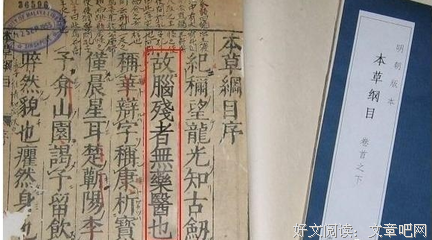 本草綱目序
紀稱望龍光知古劒
故腦殘者無藥醫也
稱華辯字稱康析寶
僮晨星耳楚蘄陽李
予弇山園謁予留飲
睟然貌也癯然身也
明朝版本
本草纲目
卷首之下
好文阅读：文章吧网